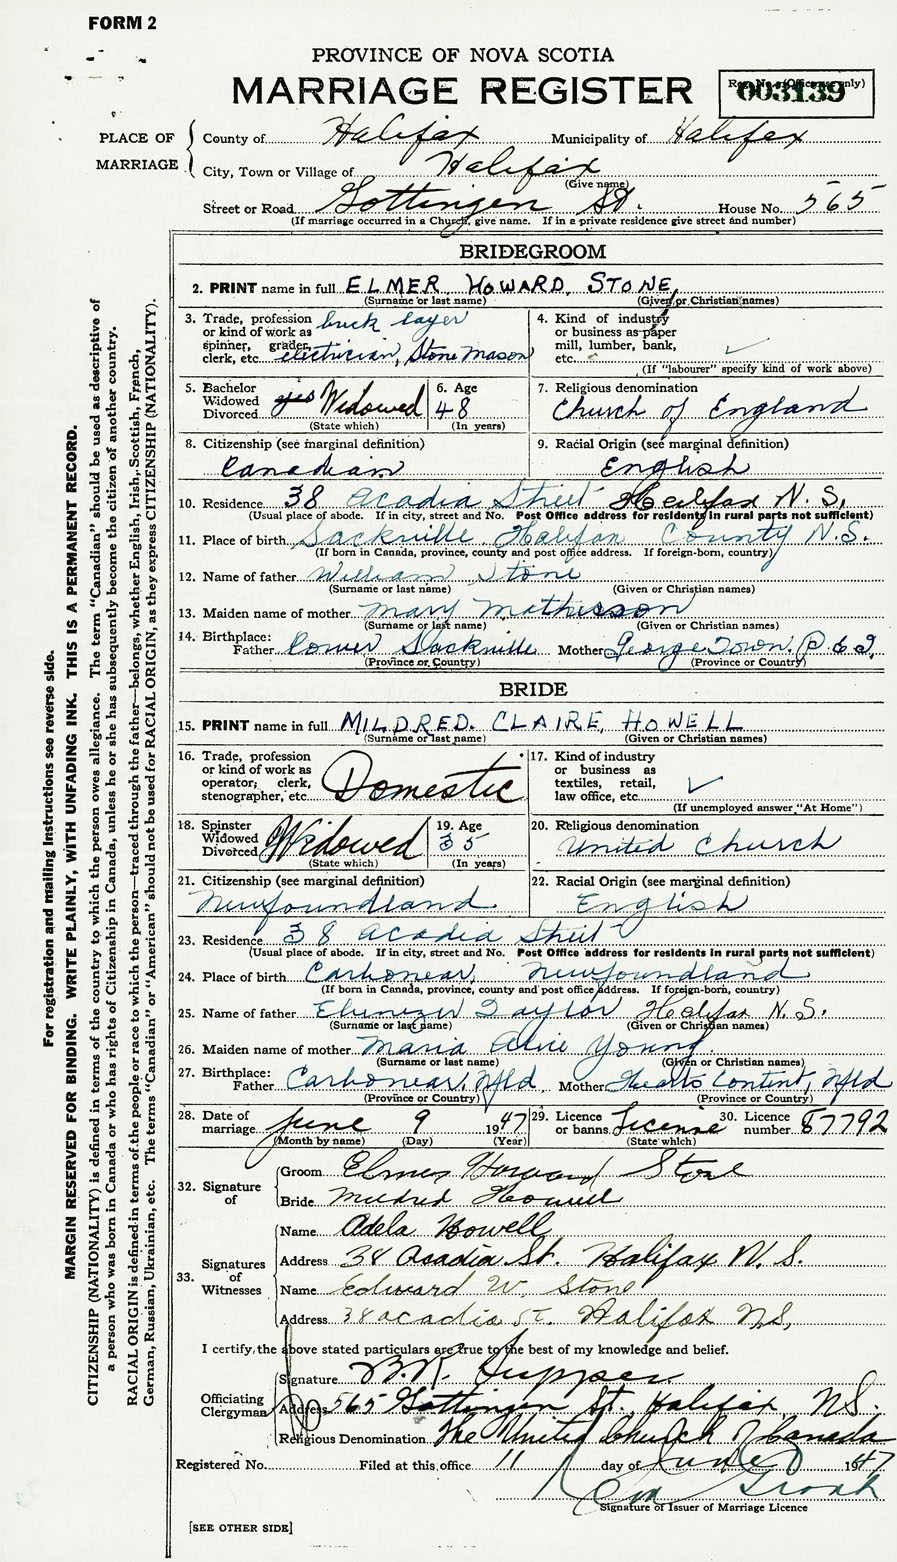 FORM 2
PROVINCE OF NOVA SCOTIA
MARRIAGE REGISTER
Reg. No. (Office use only)
003139
PLACE OF MARRIAGE
County of Halifax Municipality of Halifax
City, Town or Village of Halifax
(Give name)
Street or Road Gottingen St. House No. 565
(If marriage occurred in a Church, give name. If in a private residence give street and number)
BRIDEGROOM
2. PRINT name in full ELMER HOWARD STONE
(Surname or last name) (Given or Christian names)
3. Trade, profession or kind of work as spinner, grader, clerk, etc. brick layer
electrician, Stone Mason
4. Kind of industry or business as paper mill, lumber, bank, etc. ✓
(If "labourer" specify kind of work above)
5. Bachelor Widowed Divorced yes Widowed
(State which)
6. Age 48
(In years)
7. Religious denomination
Church of England
8. Citizenship (see marginal definition)
Canadian
9. Racial Origin (see marginal definition)
English
10. Residence 38 Acadia Street Halifax N.S.
(Usual place of abode. If in city, street and No. Post Office address for residents in rural parts not sufficient)
11. Place of birth Sackville Halifax County N.S.
(If born in Canada, province, county and post office address. If foreign-born, country)
12. Name of father William Stone
(Surname or last name) (Given or Christian names)
13. Maiden name of mother Mary Mathesson
(Surname or last name) (Given or Christian names)
14. Birthplace: Father Lower Sackville Mother George Town. P.E.I.
(Province or Country) (Province or Country)
BRIDE
15. PRINT name in full MILDRED. CLAIRE, HOWELL
(Surname or last name) (Given or Christian names)
16. Trade, profession or kind of work as operator, clerk, stenographer, etc. Domestic
17. Kind of industry or business as textiles, retail, law office, etc. ✓
(If unemployed answer "At Home")
18. Spinster Widowed Divorced Widowed
(State which)
19. Age 35
(In years)
20. Religious denomination
United Church
21. Citizenship (see marginal definition)
Newfoundland
22. Racial Origin (see marginal definition)
English
23. Residence 38 Acadia Street
(Usual place of abode. If in city, street and No. Post Office address for residents in rural parts not sufficient)
24. Place of birth Carbonear, Newfoundland
(If born in Canada, province, county and post office address. If foreign-born, country)
25. Name of father Ebenezer Taylor Halifax N.S.
(Surname or last name) (Given or Christian names)
26. Maiden name of mother Maria Alice Young
(Surname or last name) (Given or Christian names)
27. Birthplace: Father Carbonear, Nfld Mother Hearts Content, Nfld
(Province or Country) (Province or Country)
28. Date of marriage June 9 1947
(Month by name) (Day) (Year)
29. Licence or banns License
(State which)
30. Licence number 87792
32. Signature of
Groom Elmer Howard Stone
Bride Mildred Howell
33. Signatures of Witnesses
Name Adela Howell
Address 38 Acadia St. Halifax N.S.
Name Edward W. Stone
Address 38 acadia St. Halifax NS,
I certify the above stated particulars are true to the best of my knowledge and belief.
Officiating Clergyman
Signature B.R. Tupper
Address 565 Gottingen St. Halifax, NS.
Religious Denomination The United Church of Canada
Registered No. Filed at this office 11 day of June 1947
Signature of Issuer of Marriage Licence
[SEE OTHER SIDE]
For registration and mailing Instructions see reverse side.
MARGIN RESERVED FOR BINDING. WRITE PLAINLY, WITH UNFADING INK. THIS IS A PERMANENT RECORD.
CITIZENSHIP (NATIONALITY) is defined in terms of the country to which the person owes allegiance. The term "Canadian" should be used as descriptive of
a person who was born in Canada or who has rights of Citizenship in Canada, unless he or she has subsequently become the citizen of another country.
RACIAL ORIGIN is defined in terms of the people or race to which the person—traced through the father—belongs, whether English, Irish, Scottish, French,
German, Russian, Ukrainian, etc. The terms "Canadian" or "American" should not be used for RACIAL ORIGIN, as they express CITIZENSHIP (NATIONALITY).